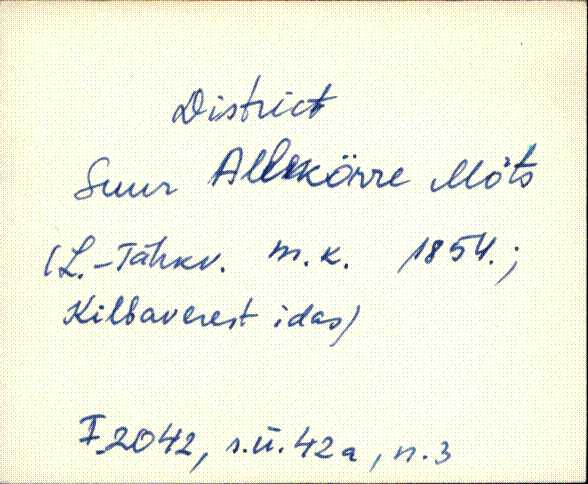 District
Suur Allekörre Mõts
(L.-Tähkv. m.k. 1854.;
Kilbaverest idas)
I 2042, s.ü. 42a, n.3